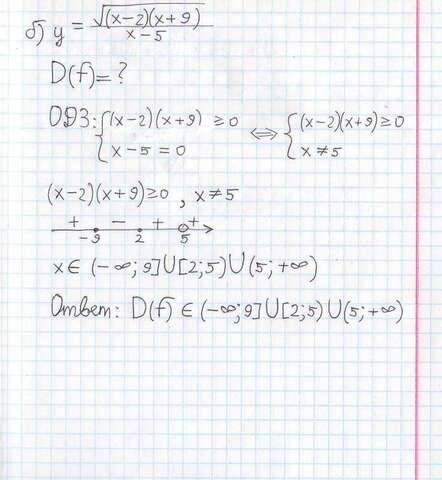 б) y = √((x-2)(x+9)) / (x-5)
D(f)=?
ОДЗ: { (x-2)(x+9) ≥0 ; x-5 = 0 ⇔ { (x-2)(x+9)≥0 ; x≠5
(x-2)(x+9)≥0 , x≠5
+ - + +
-9 2 5
x∈ (-∞; 9]∪[2;5)∪(5;+∞)
Ответ: D(f) ∈ (-∞; 9]∪[2;5)∪(5;+∞)